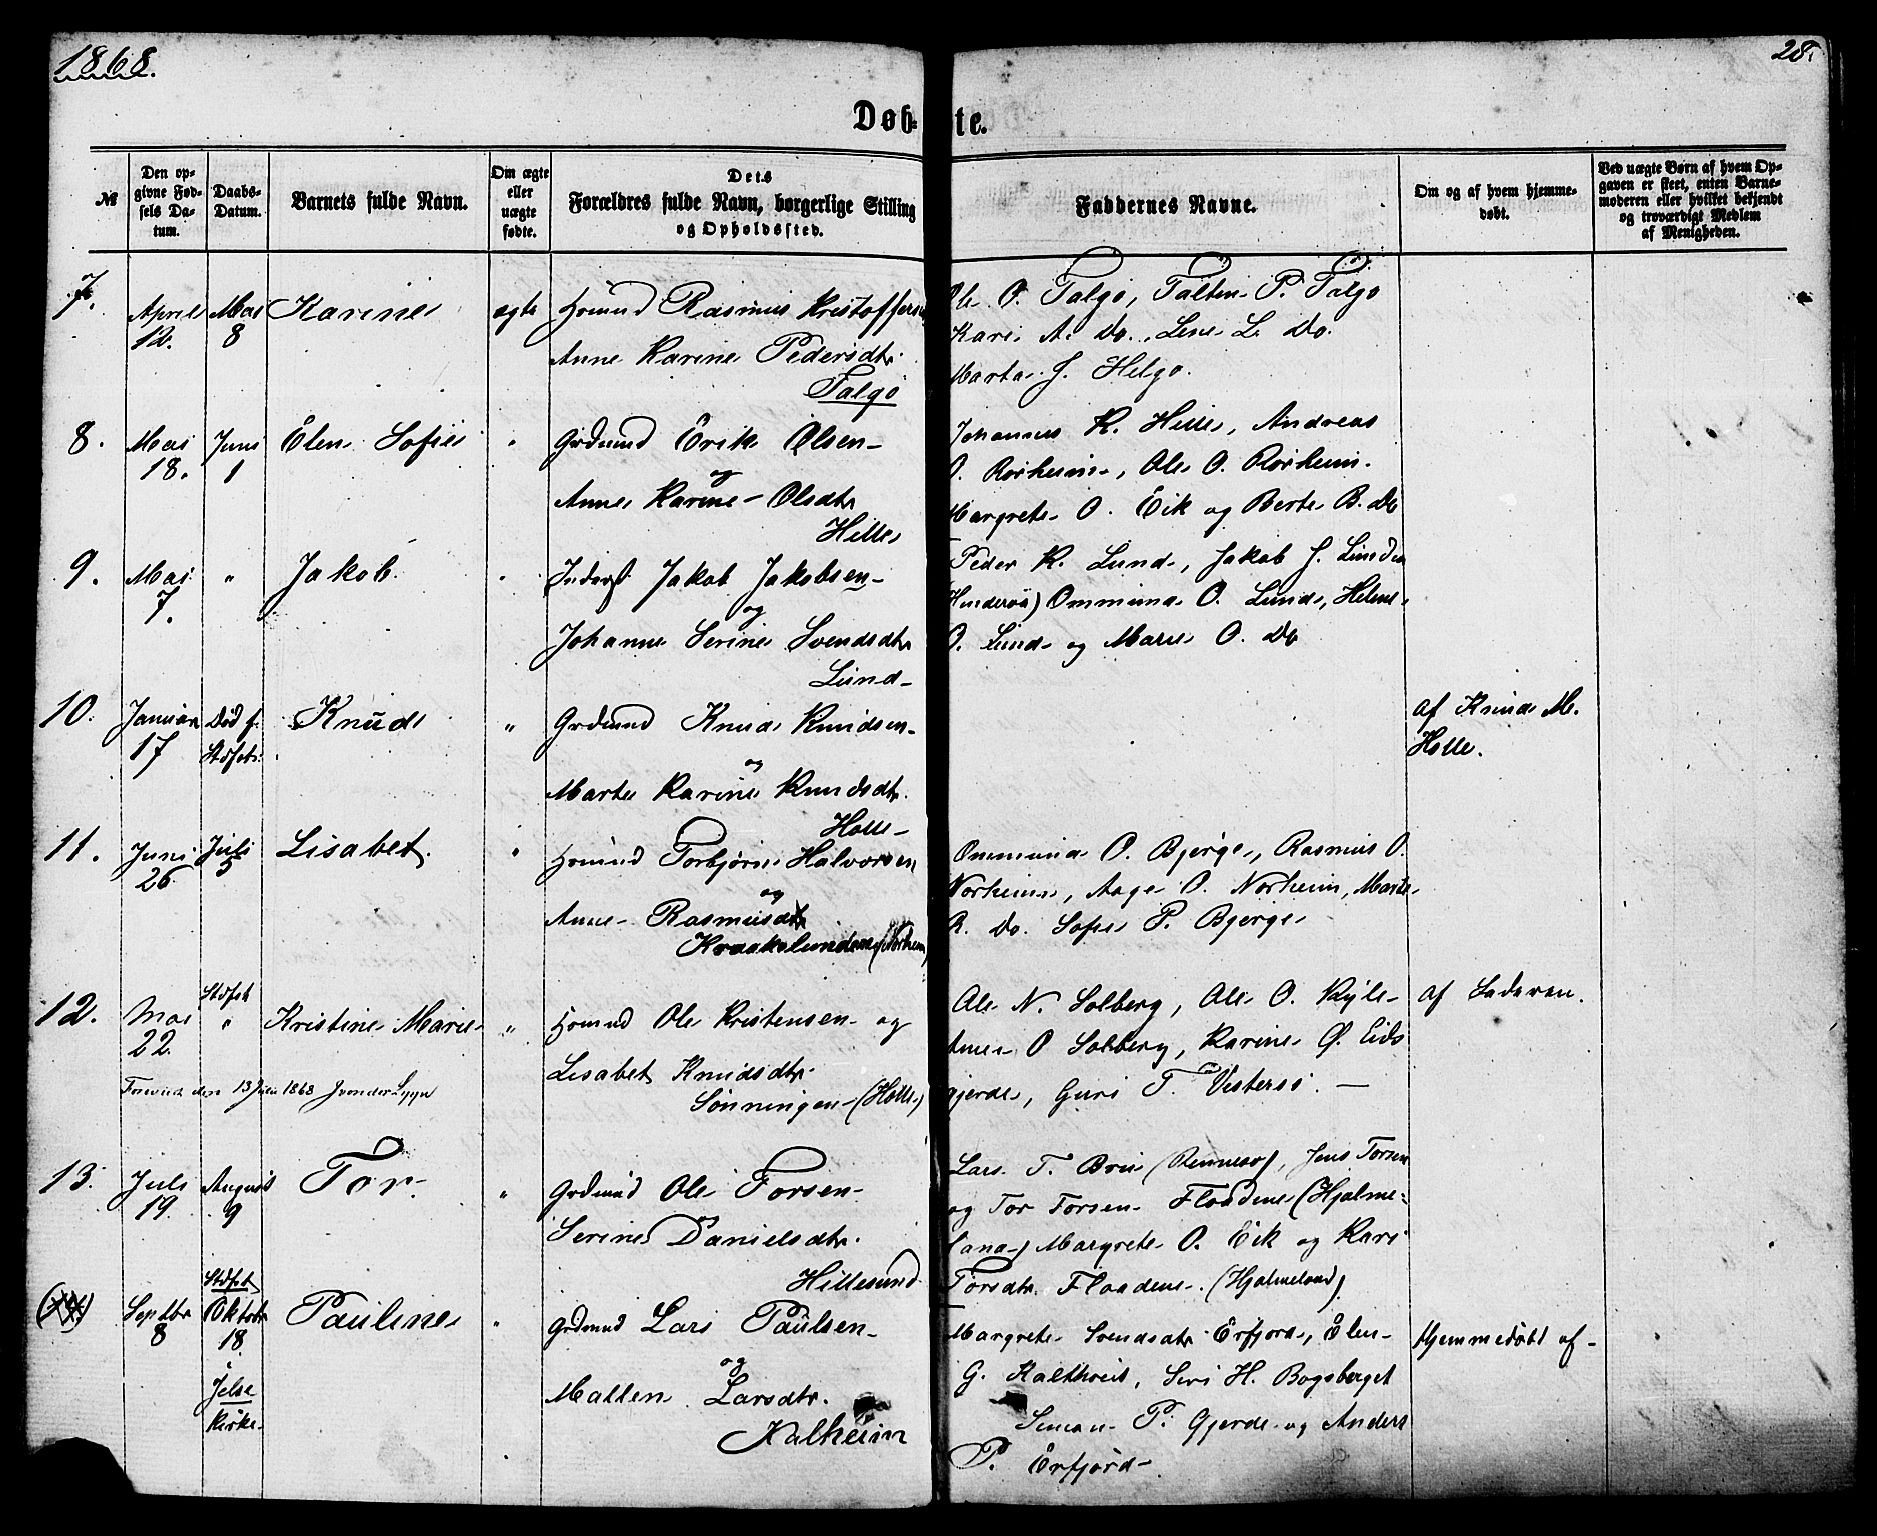 1868.
28.
Døb-te.
№
Den op-
givne Fød-
sels Da-
tum.
Daabs-
Datum.
Barnets fulde Navn.
Om ægte
eller
uægte
fødte.
Dets
Forældres fulde Navn, borgerlige Stilling
og Opholdssted.
Faddernes Navne.
Om og af hvem hjemme-
døbt.
Ved uægte Børn af hvem Op-
gaven er skeet, enten Barne-
moderen eller hvilket bekjendt
og troværdigt Medlem
af Menigheden.
7.
April
12.
Mai
8
Karine
ægte
Hsmnd Rasmus Kristoffersen
Anne Karine Pedersdtr.
Talgø
Ole O. Talgø, Falten P. Talgø
Kari A. Do., Lene L. Do.
Marta J. Helgø.
8.
Mai
18.
Juni
1
Elen Sofie
"
Grdmnd Erik Olsen
og
Anne Karine Olsdtr
Hille
Johannes K. Hille, Andreas
O. Rørheim, Ole O. Rørheim.
Margrete O. Eik og Berte B. Do
9.
Mai
7.
"
Jakob.
"
Inderst Jakob Jakobsen
og
Johanne Serine Svendsdtr
Lund
Peder K. Lund, Jakob J. Linden
(Hinderøa) Ommund O. Lund, Helene
O. Lund og Marie O. Do
10.
Januar
17
Død f.
Stdfst.
Knud
"
Grdmnd Knud Knudsen
og
Marte Karine Knudsdtr.
Holle
af Knud M.
Holle.
11.
Juni
26
Juli
5
Lisabet.
"
Hsmnd Torbjørn Halvorsen
og
Anne Rasmusdtr
Kraakelunden (Norheim)
Ommund O. Bjerge, Rasmus O.
Norheim, Aage O. Norheim, Marte
R. Do. Sofie P. Bjerge
12.
Mai
22.
Stdfst
"
Kristine Marie
"
Hsmnd Ole Kristensen og
Lisabet Knudsdtr.
Sønningen (Holle)
Ole N. Solberg, Ole O. Kyle
Anne O Solberg, Karine Ø. Eids
gjerde, Guri T. Vestersø.
af Faderen.
den 13 Juli 1868
13.
Juli
19.
August
9
Tor
"
Grdmnd Ole Torsen
Serine Danielsdtr.
Hillesund
Lars T. Bru (Rennesø), Jens Torsen
og Tor Torsen Floadene (Hjelme-
land) Margrete O. Eik og Kari
Torsdtr. Floadene. (Hjelmeland)
(14)
Septbr
8
Stdfst
Oktobr
18.
i
Jelse
Kirke
Pauline
"
Grdmnd Lars Paulsen
og
Malten Larsdtr.
Kalheim
Margrete Svendsdtr Erfjord, Elen
G. Kaltveit, Siri H. Bogsberget
Simon P. Gjerde og Anders
P. Erfjord
Hjemmedøbt af